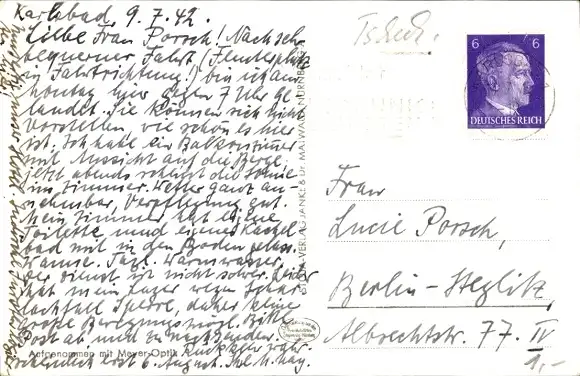 Karlsbad, 9.7.42.
Liebe Frau Porsch! Nach sehr
bequemer Fahrt (Fensterplatz
in Fahrtrichtung!) bin ich am
Montag hier gegen 7 Uhr ge-
landet. Sie können sich nicht
vorstellen, wie schön es hier
ist. Ich habe ein Balkonzimmer
mit Aussicht auf die Berge,
jetzt abends scheint die Sonne
ins Zimmer. Wetter ganz an-
nehmbar, Verpflegung gut.
Mein Zimmer hat eigene
Toilette und eigenes Kachel-
bad mit in den Boden
Wanne. Tägl. Warmwasser,
der Dienst ist nicht schwer. Leider
hat mein Lager wegen
Sperre, daher keine
große Bewegungsmögl. Bitte
Post ab und zu nachsenden.
Rückkehr wahr-
scheinlich erst 6. August.
Aufgenommen mit Meyer-Optik
Tschech.
6 6
DEUTSCHES REICH
Frau
Lucie Porsch,
Berlin-Steglitz
Albrechtstr. 77. IV
1,-